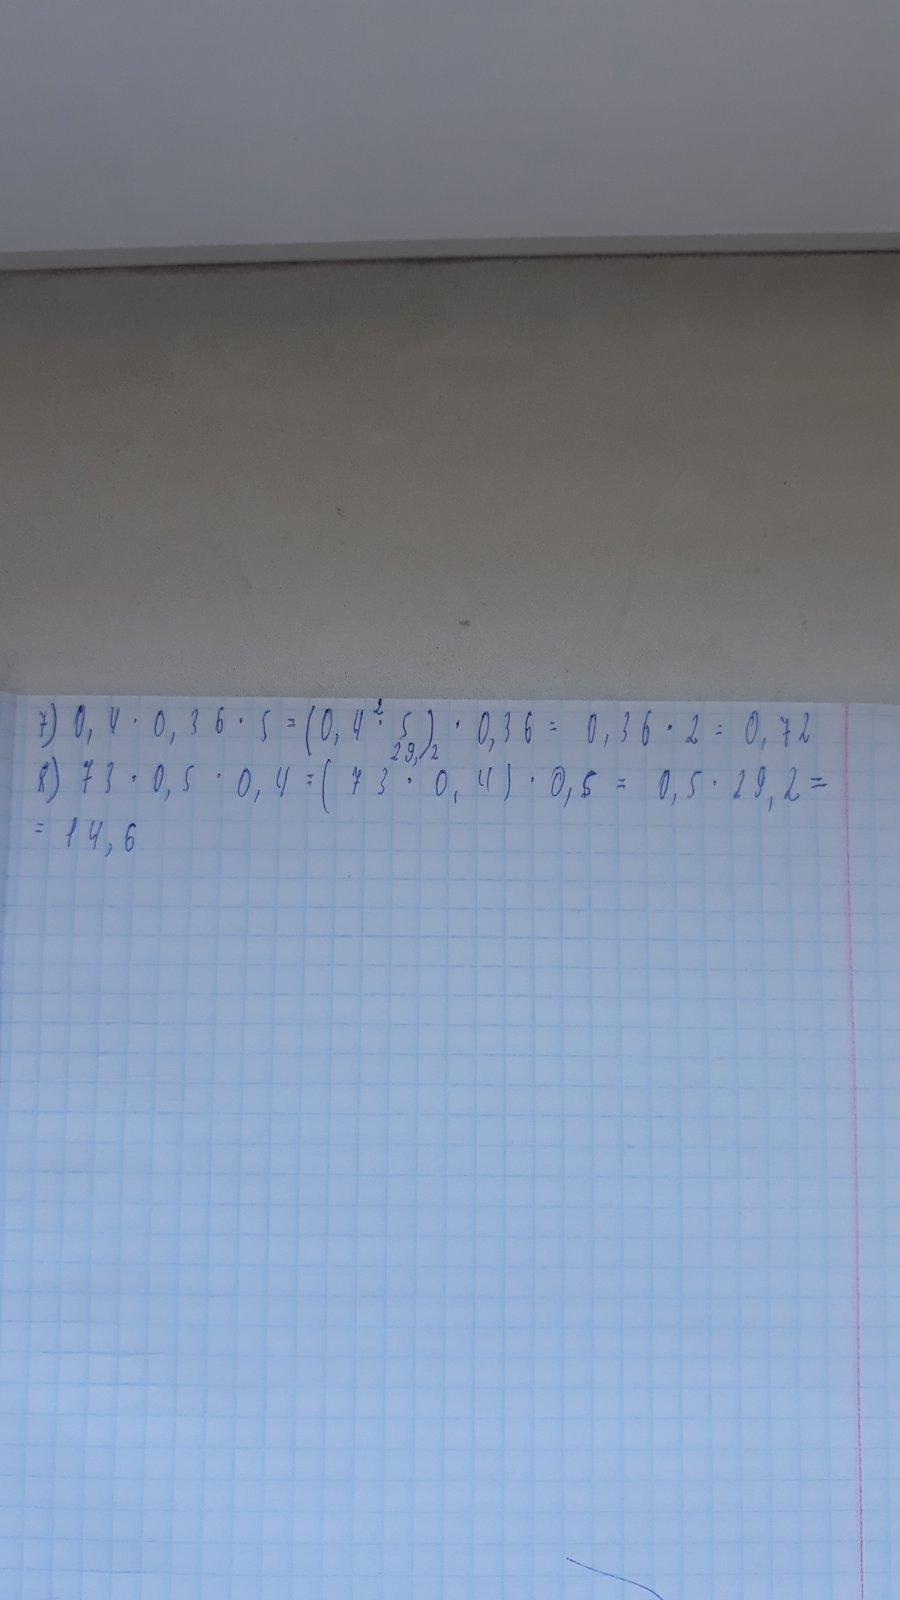 7) 0,4 · 0,36 · 5 = (0,4 · 5) · 0,36 = 0,36 · 2 = 0,72
2
29,2
8) 73 · 0,5 · 0,4 = (73 · 0,4) · 0,5 = 0,5 · 29,2 =
= 14,6